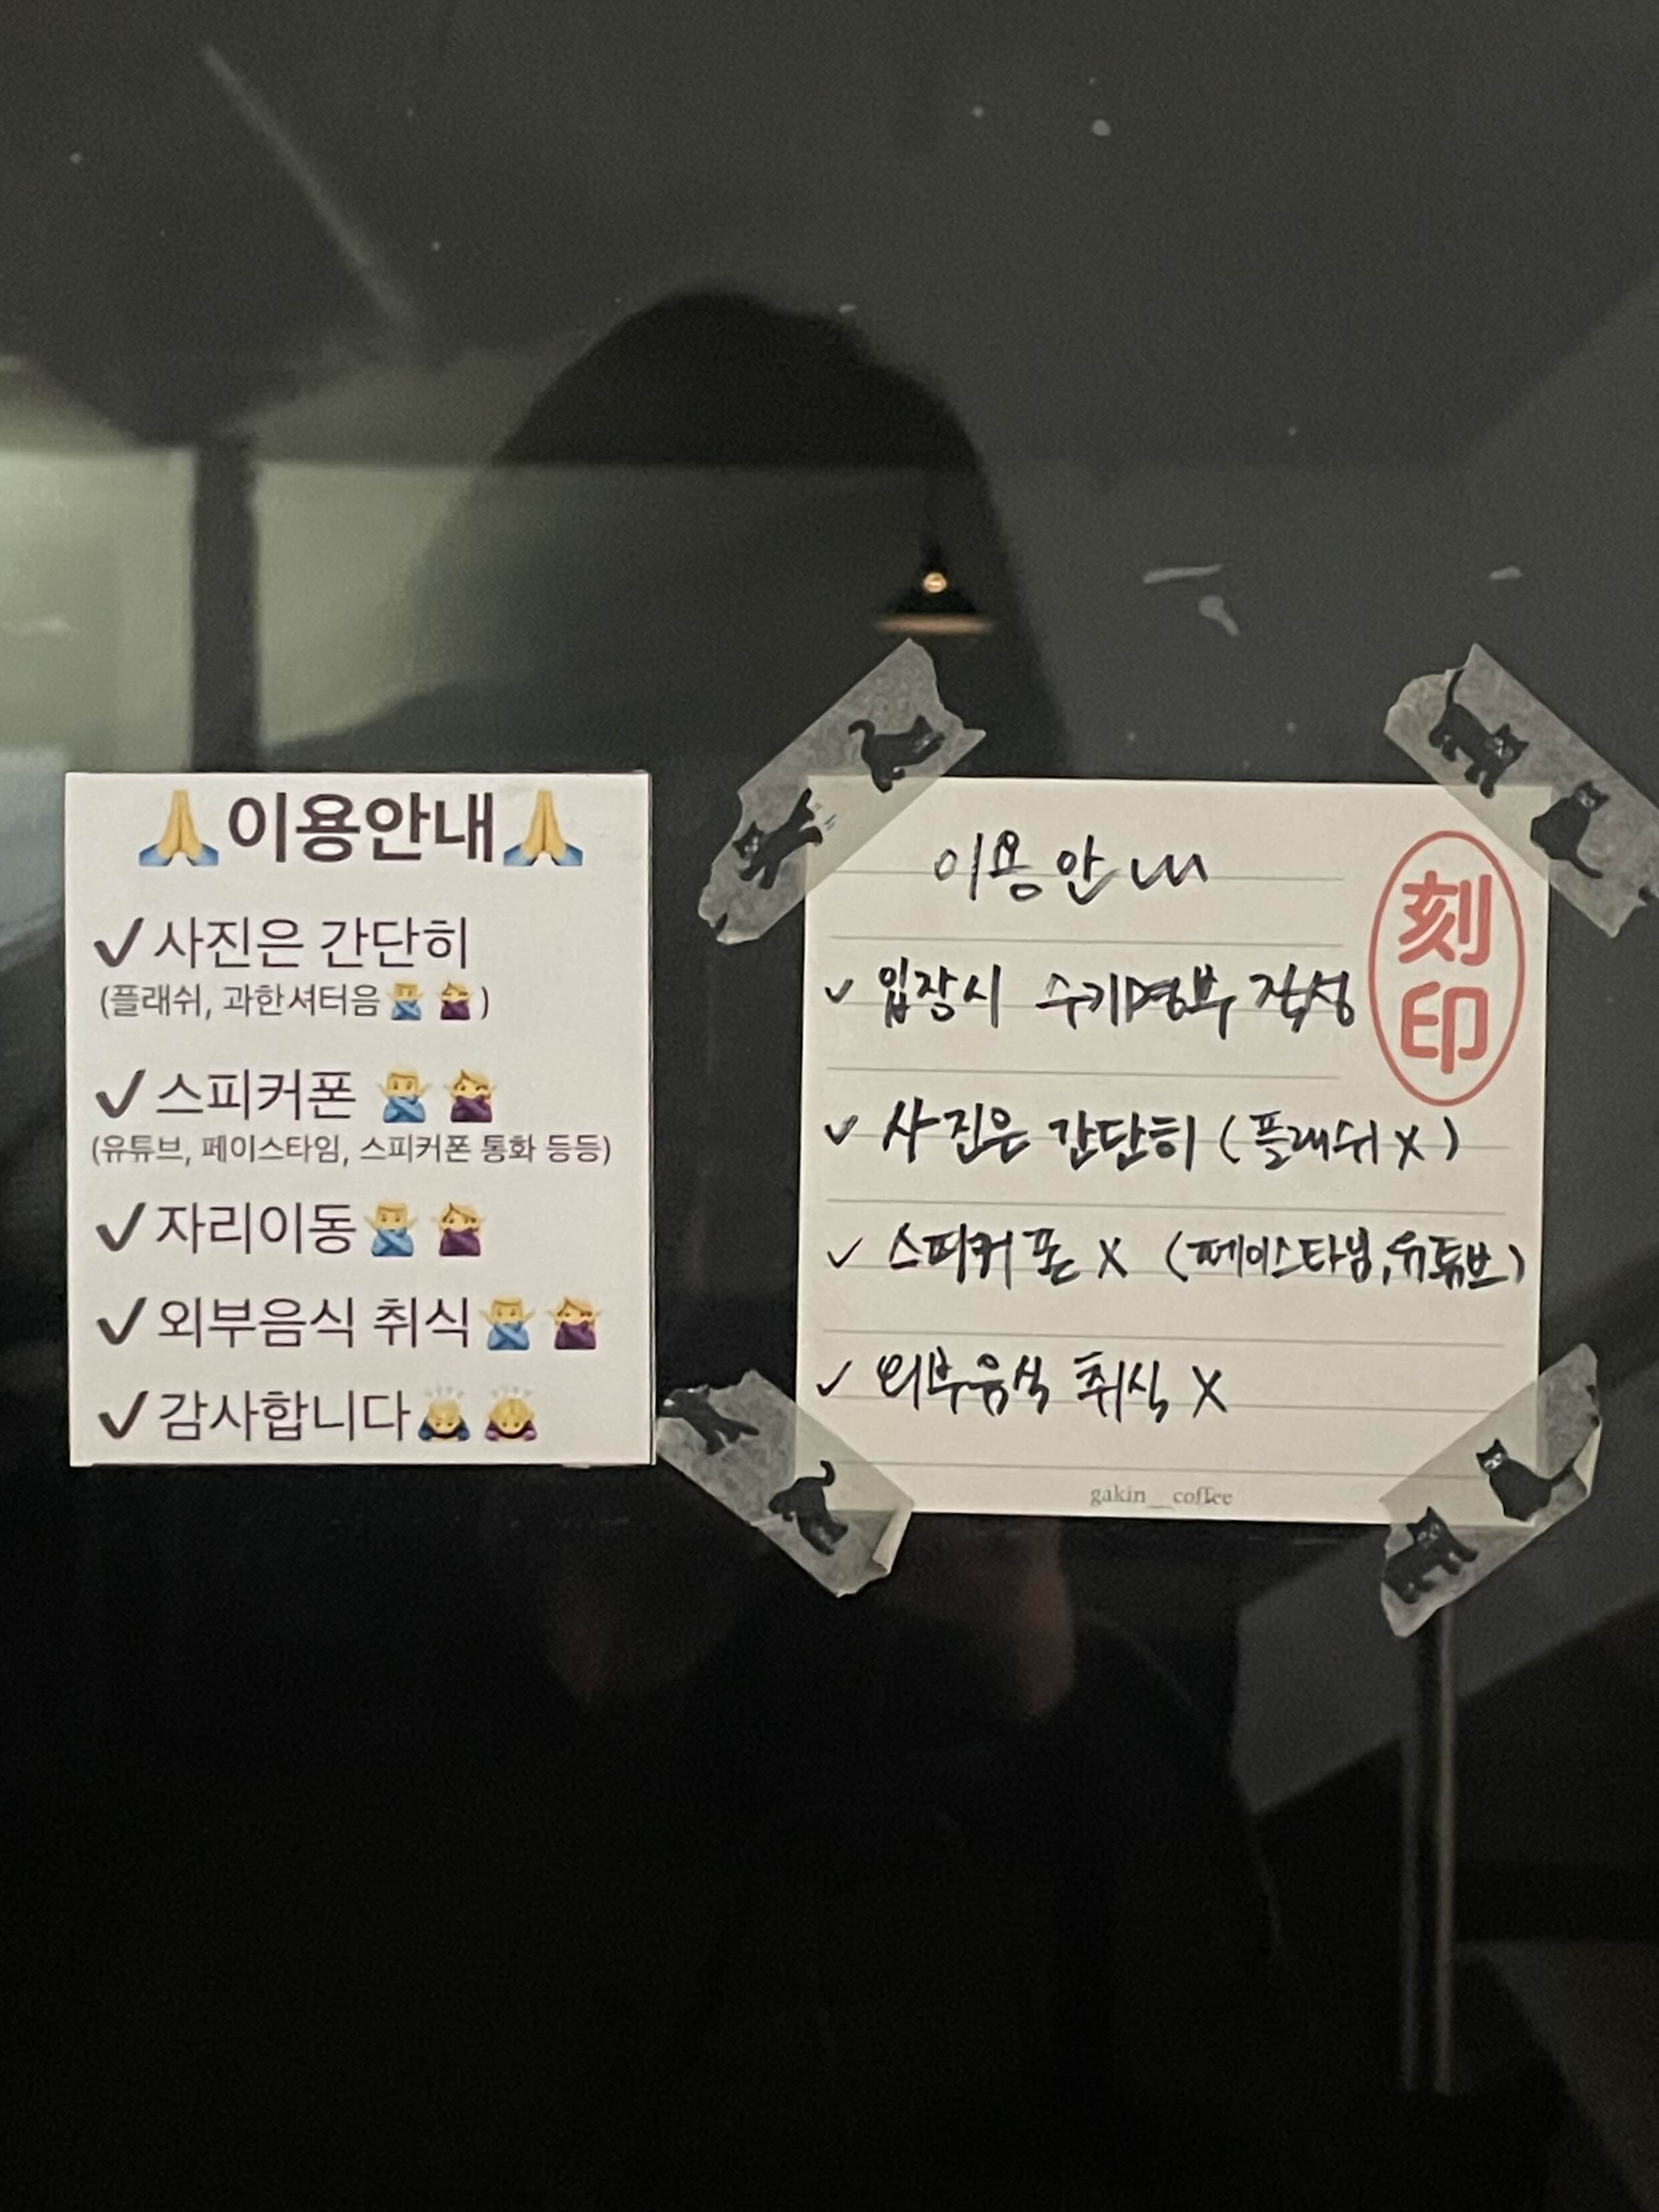 🙏이용안내🙏
✔사진은 간단히
(플래쉬, 과한셔터음🙅‍♂️🙅‍♀️)
✔스피커폰 🙅‍♂️🙅‍♀️
(유튜브, 페이스타임, 스피커폰 통화 등등)
✔자리이동🙅‍♂️🙅‍♀️
✔외부음식 취식🙅‍♂️🙅‍♀️
✔감사합니다🙇‍♂️🙇‍♀️
이용안내
✓ 입장시 수기명부 작성
✓ 사진은 간단히 (플래쉬 X)
✓ 스피커폰 X (페이스타임, 유튜브)
✓ 외부음식 취식 X
刻
印
gakin__coffee